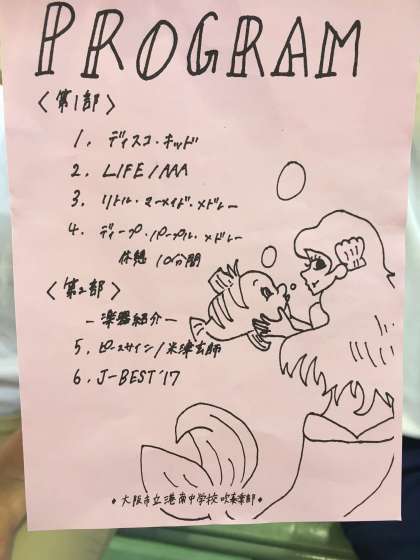 PROGRAM
〈第1部〉
1. ディスコ・キッド
2. LIFE/AAA
3. リトル・マーメイド・メドレー
4. ディープ・パープル・メドレー
休憩 10分間
〈第2部〉
-楽器紹介-
5. ピースサイン/米津玄師
6. J-BEST'17
◆大阪市立港南中学校吹奏楽部◆